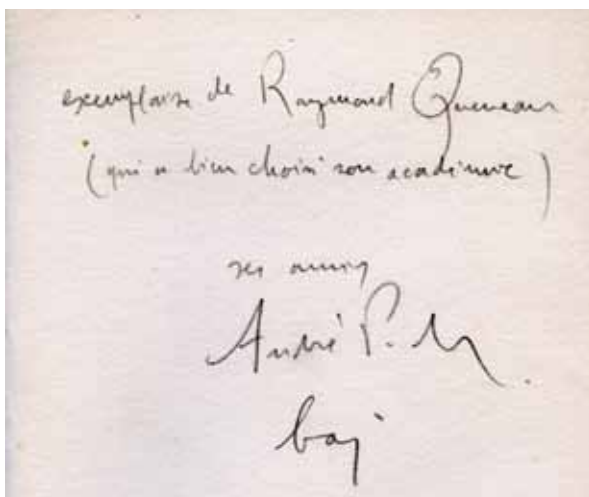 exemplaire de Raymond Queneau
(qui a bien choisi son académie)
ses amis
André P. de M.
baj